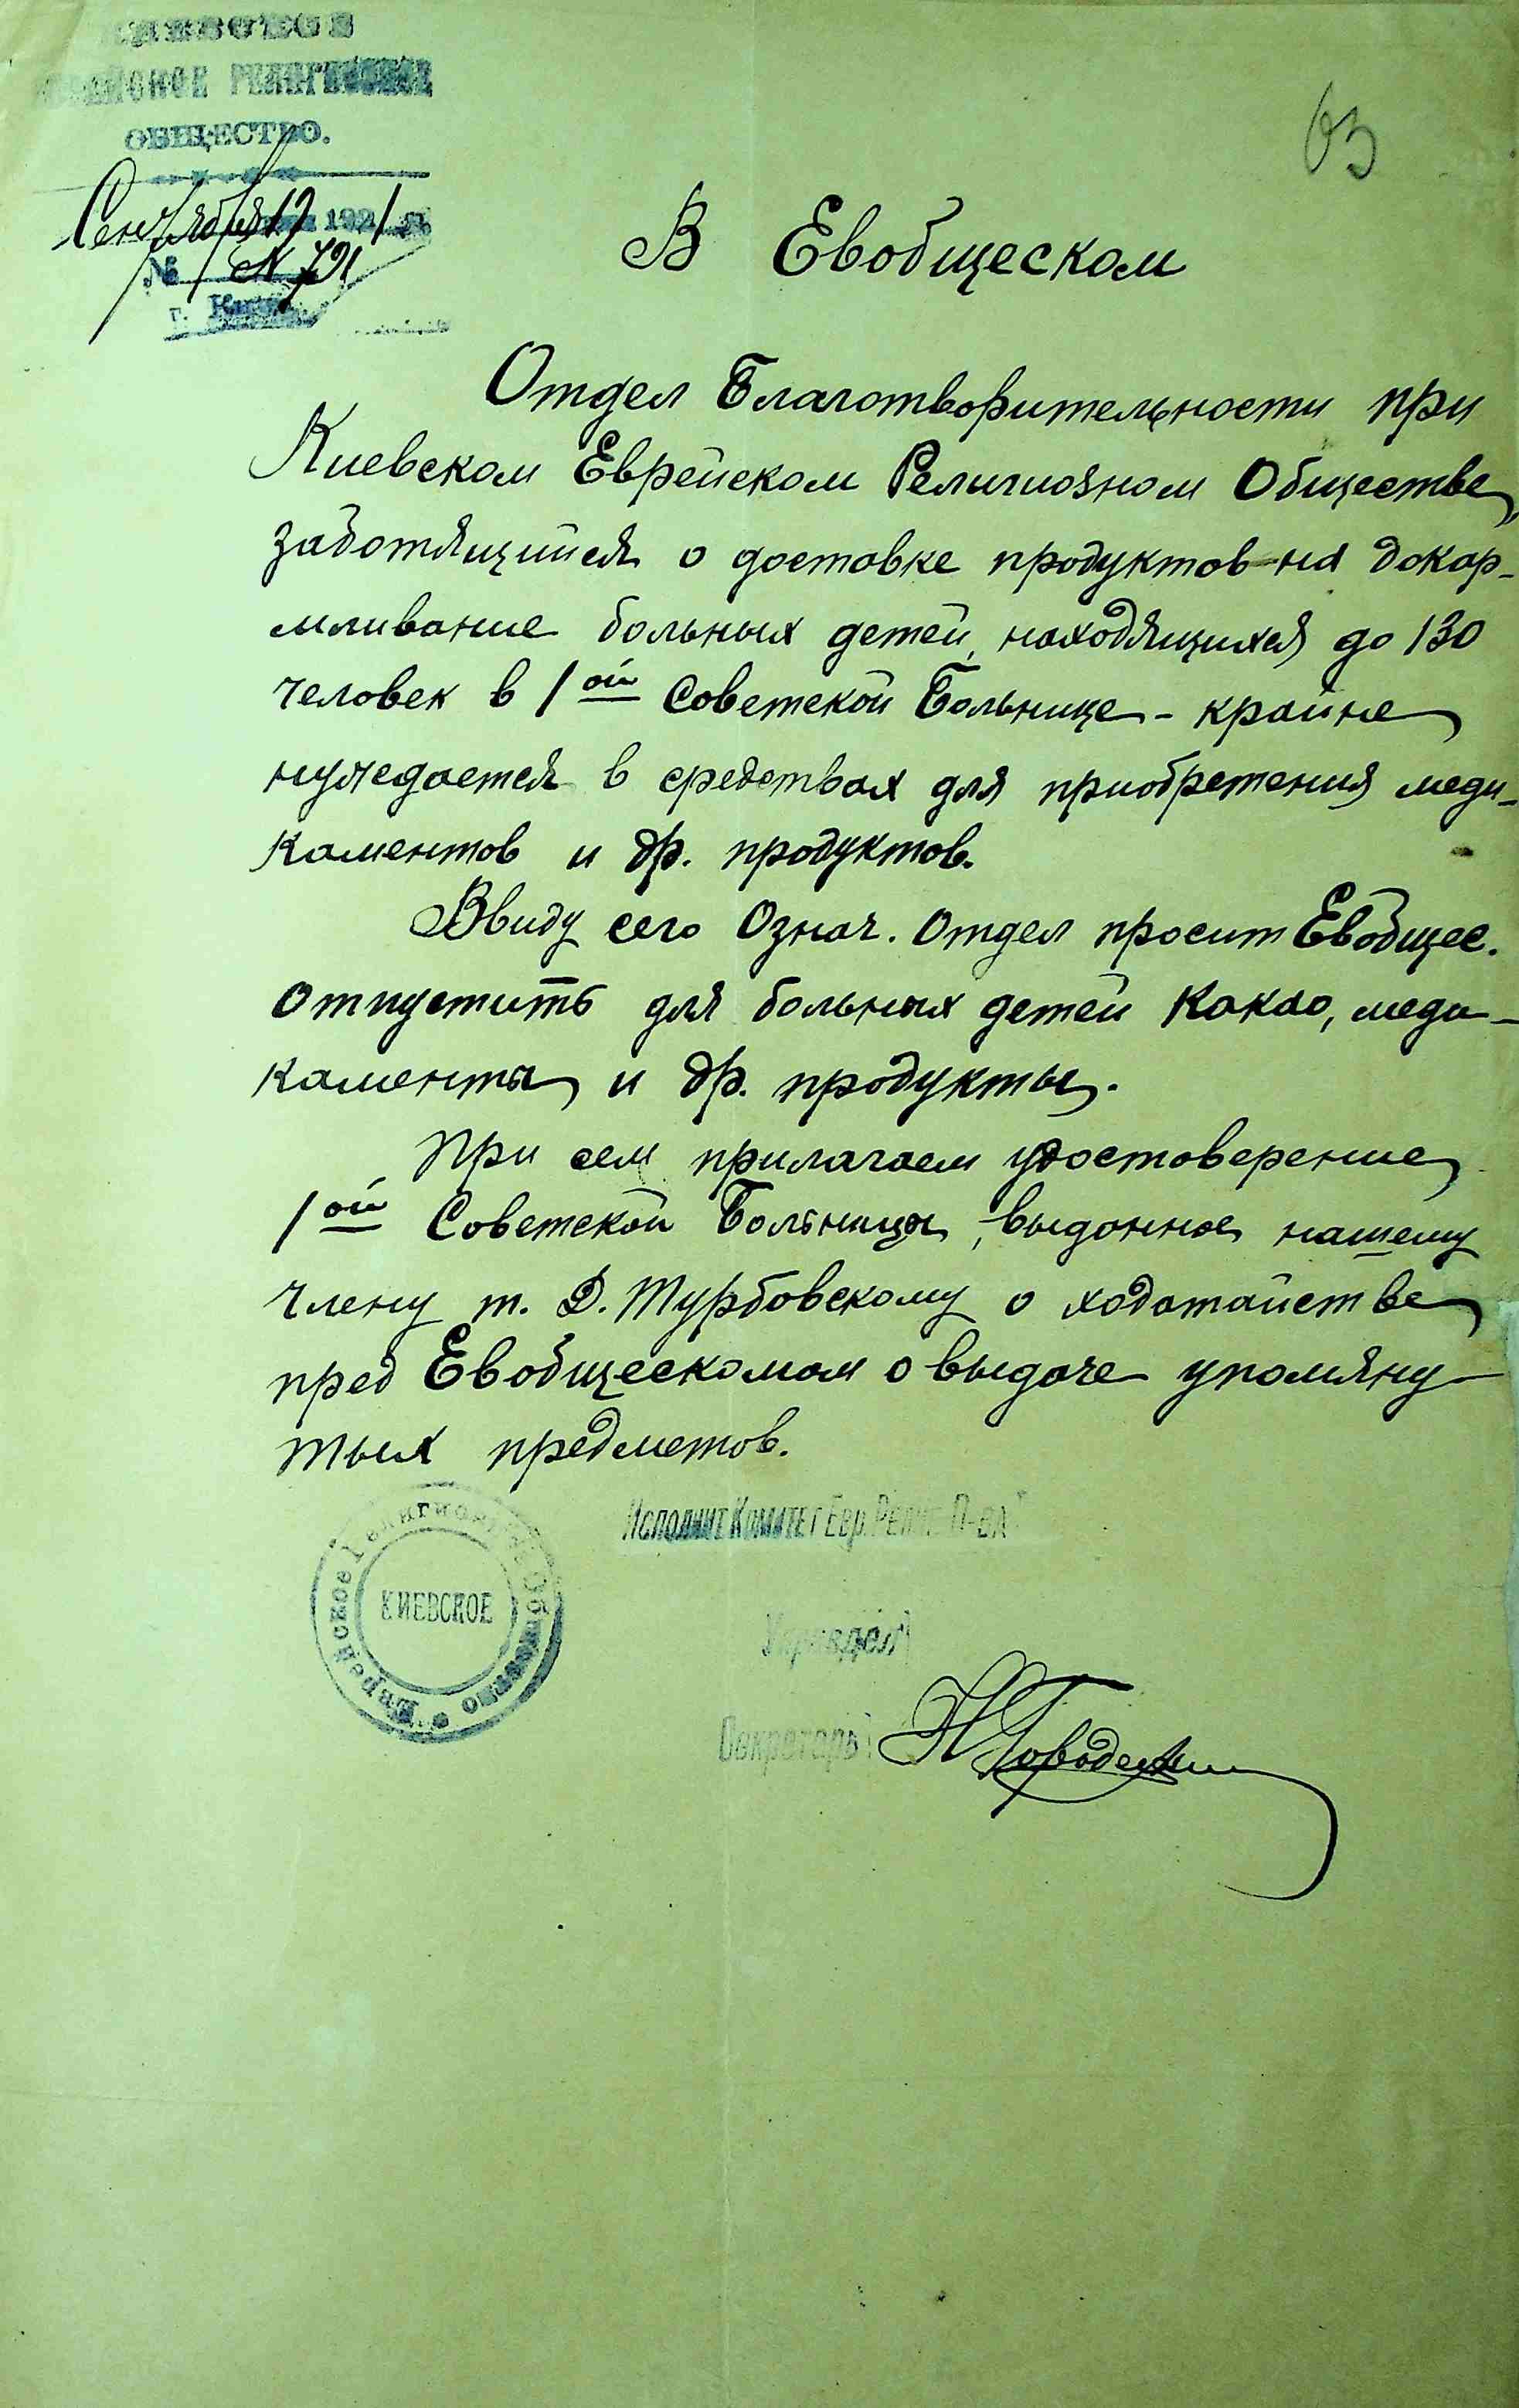 КИЕВСКОЕ
ЕВРЕЙСКОЕ РЕЛИГИОЗНОЕ
ОБЩЕСТВО.
Сентября 19 1921 г.
№ N 791
г. Киев
63
В Евобщеском
Отдел Благотворительности при
Киевском Еврейском Религиозном Обществе,
заботящийся о доставке продуктов на докар-
мливание больных детей, находящихся до 130
человек в 1ой Советской Больнице - крайне
нуждается в средствах для приобретения меди-
каментов и др. продуктов.
Ввиду сего Означ. Отдел просит Евобщес.
отпустить для больных детей какао, меди-
каменты и др. продукты.
При сем прилагаем удостоверение
1ой Советской Больницы, выданное нашему
члену т. Д. Турбовскому о ходатайстве
пред Евобщескомом о выдаче упомяну-
тых предметов.
Исполнит Комитет Евр. Религ. О-ва
Еврейское Религиозное Общество
КИЕВСКОЕ
Управдел
Секретарь